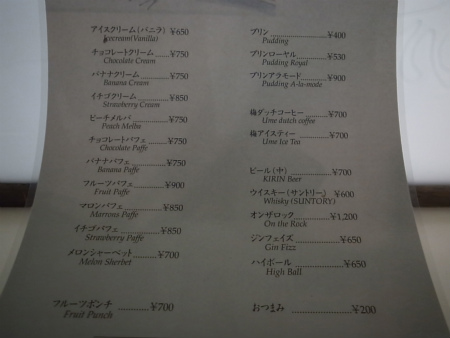 アイスクリーム(バニラ) ¥650
Icecream(Vanilla)
チョコレートクリーム ......... ¥750
Chocolate Cream
バナナクリーム ............ ¥750
Banana Cream
イチゴクリーム ............ ¥850
Strawberry Cream
ピーチメルバ ............ ¥750
Peach Melba
チョコレートパフェ ......... ¥750
Chocolate Paffe
バナナパフェ ............ ¥750
Banana Paffe
フルーツパフェ ............ ¥900
Fruit Paffe
マロンパフェ ............ ¥850
Marrons Paffe
イチゴパフェ ............ ¥850
Strawberry Paffe
メロンシャーベット ......... ¥700
Melon Sherbet
フルーツポンチ ......... ¥700
Fruit Punch
プリン ............ ¥400
Pudding
プリンローヤル ............ ¥530
Pudding Royal
プリンアラモード ......... ¥900
Pudding A-la-mode
梅ダッチコーヒー ......... ¥700
Ume dutch coffee
梅アイスティー ......... ¥700
Ume Ice Tea
ビール(中) ............ ¥700
KIRIN Beer
ウイスキー(サントリー) ¥600
Whisky (SUNTORY)
オンザロック ......... ¥1,200
On the Rock
ジンフェイズ ............ ¥650
Gin Fizz
ハイボール ............ ¥650
High Ball
おつまみ ............ ¥200